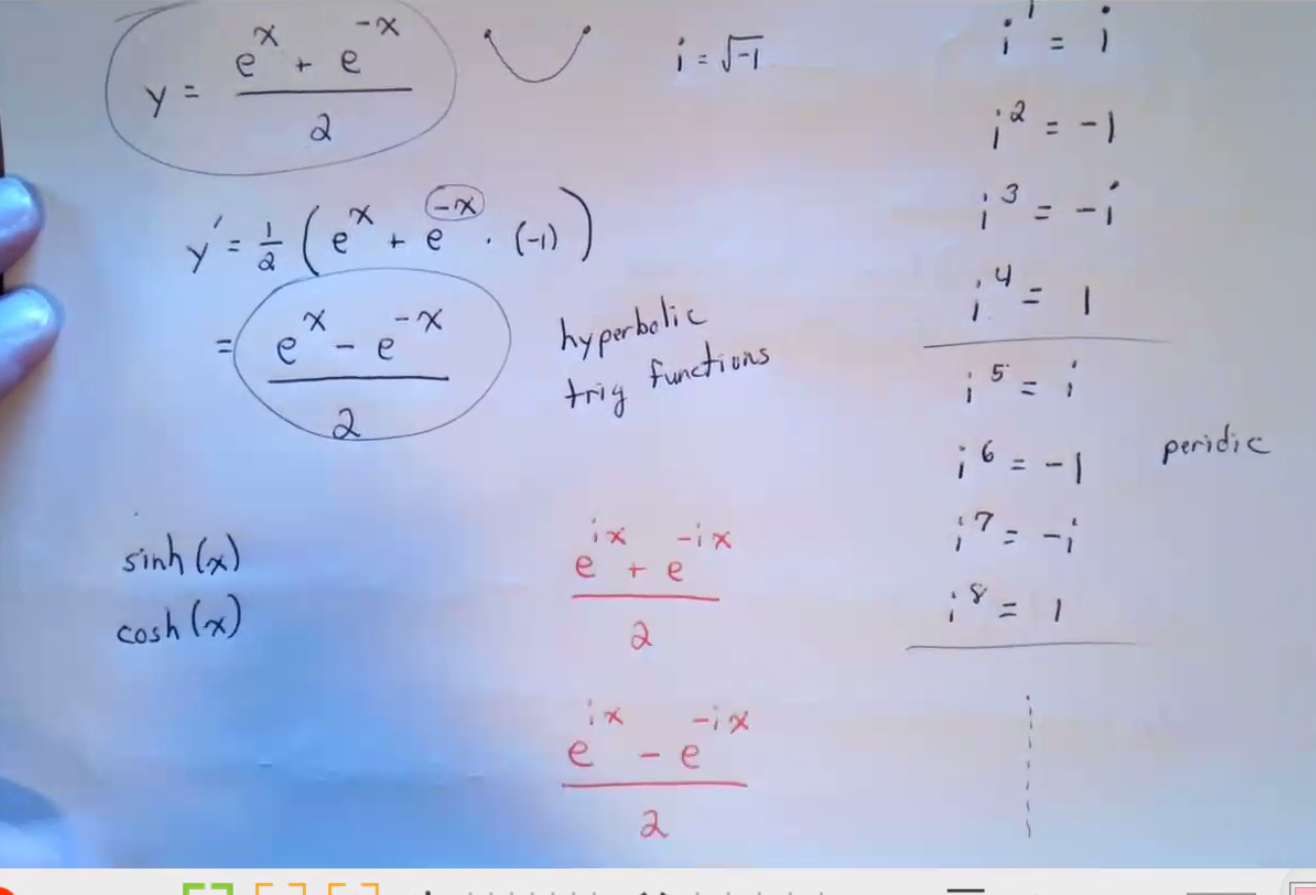 y = (e^x + e^-x)/2
i = √-1
y' = 1/2 (e^x + e^-x · (-1))
= (e^x - e^-x)/2
hyperbolic
trig functions
sinh(x)
cosh(x)
(e^ix + e^-ix)/2
(e^ix - e^-ix)/2
i^1 = i
i^2 = -1
i^3 = -i
i^4 = 1
i^5 = i
i^6 = -1
peridic
i^7 = -i
i^8 = 1